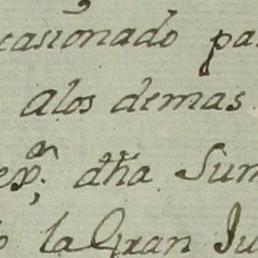 casionado pa
alos demas
exp.ª; dhã Sum
o la Gran Ju